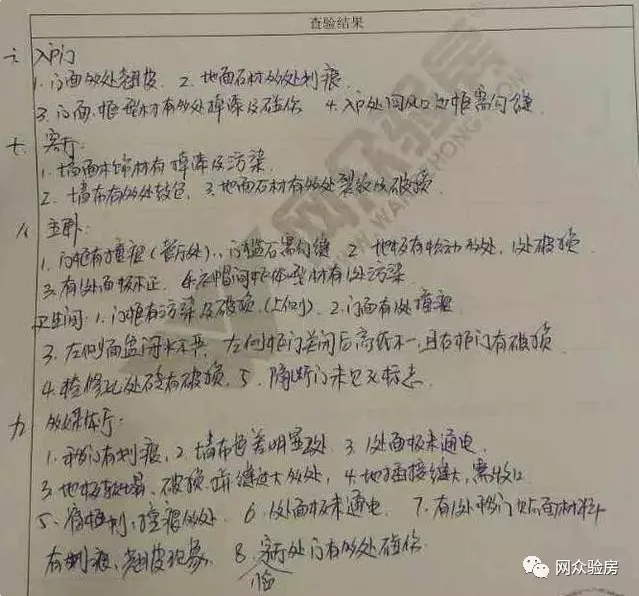 查验结果
六 入户门
1. 门面多处翘皮 2. 地面石材多处划痕
3. 门面.框型材有多处掉漆及磕伤 4. 入户处网风口边框需勾缝
七. 客厅:
1. 墙面木饰材有掉漆及污染
2. 墙布有多处鼓包. 3. 地面石材有多处裂纹及破损
八. 主卧:
1. 门框有撞痕(客厅处)、门槛石需勾缝 2. 地板有松动多处, 1处破损
3. 有1处面板不正 4. 衣帽间柜体型材有1处污染
卫生间: 1. 门框有污染及破损(上侧) 2. 门面有1处撞痕
3. 左侧面盆闭水不严 左侧柜门关闭后高低不一, 且右柜门有破损
4. 检修口处磕有破损. 5. 隔断门未见3C标志
九. 多媒体厅:
1. 移门有划痕, 2. 墙布色差明显多处 3. 1处面板未通电
3. 地板松动、破损. 拼缝过大多处, 4. 地插接缝大, 需收口
5. 有划、撞痕多处. 6. 1处面板未通电. 7. 有1处移门贴面材料
有划痕、翘皮现象. 8. 客厅处门有多处磕伤.
网众验房
WANGZHONG.COM
网众验房